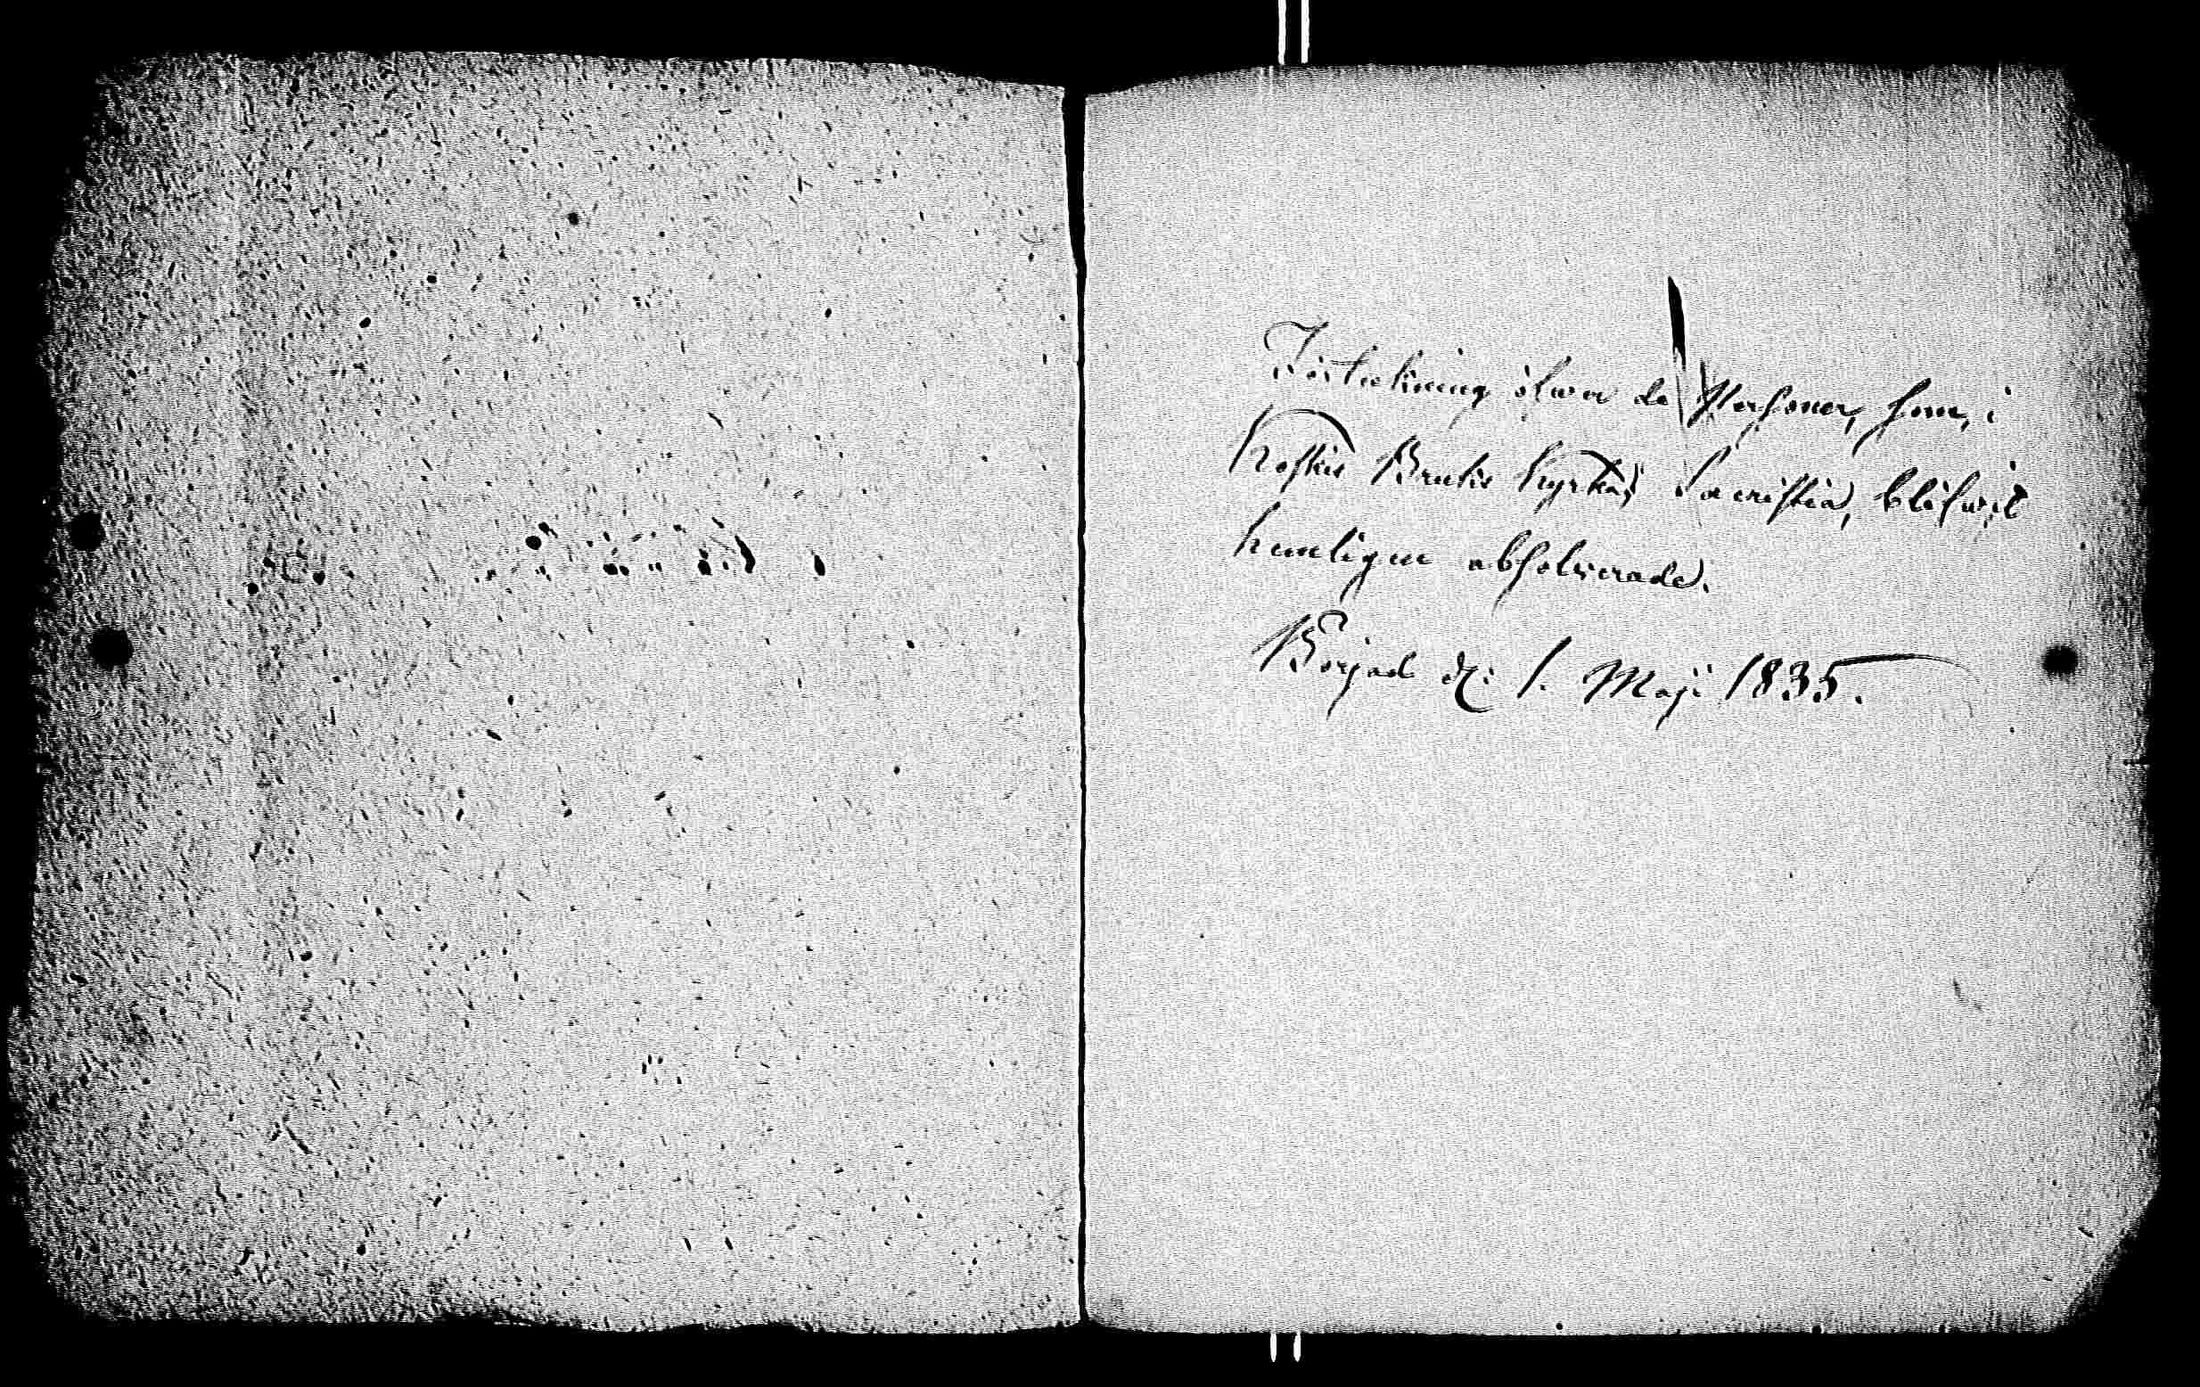 Förteckning öfwer de Personer, som, i
Kyrkas Sacristia, blifwit
hemligen absolverade.
Börjad d. 1. Maji 1835.